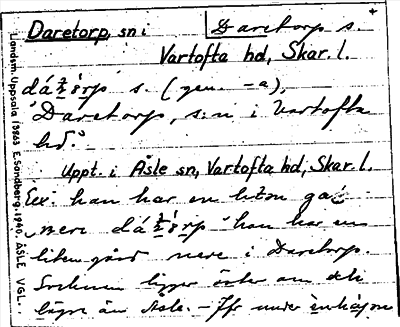 Daretorp, sn i
Daretorp s.
Vartofta hd, Skar. l.
s. (gen. -a),
"Daretorp, s:n i Vartofta
hd."
Uppt. i Åsle sn, Vartofta hd, Skar. l.
Ex. han har en liten
nere "han har en
liten gård nere i Daretorp.
Socknen ligger öster om det
lägre än Åsle. – Jfr under
Landsm. Uppsala E. Sandberg. 1940. ÅSLE VGL.